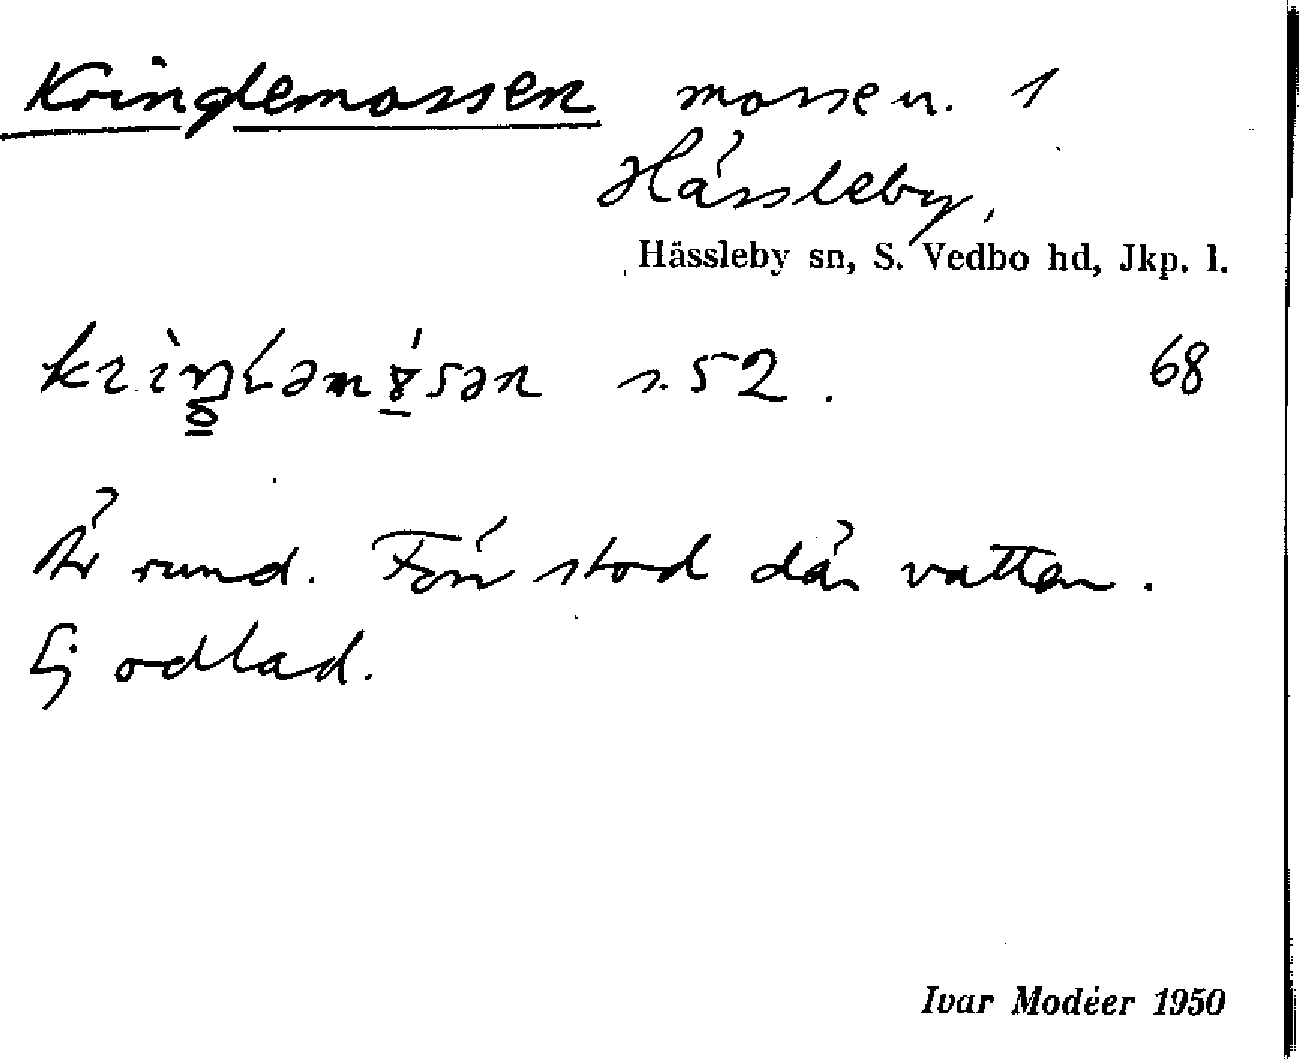 Kringlemossen mosse n. 1
Hässleby,
Hässleby sn, S. Vedbo hd, Jkp. l.
s. 52. 68
Är rund. Förr stod där vatten.
Ej odlad.
Ivar Modéer 1950